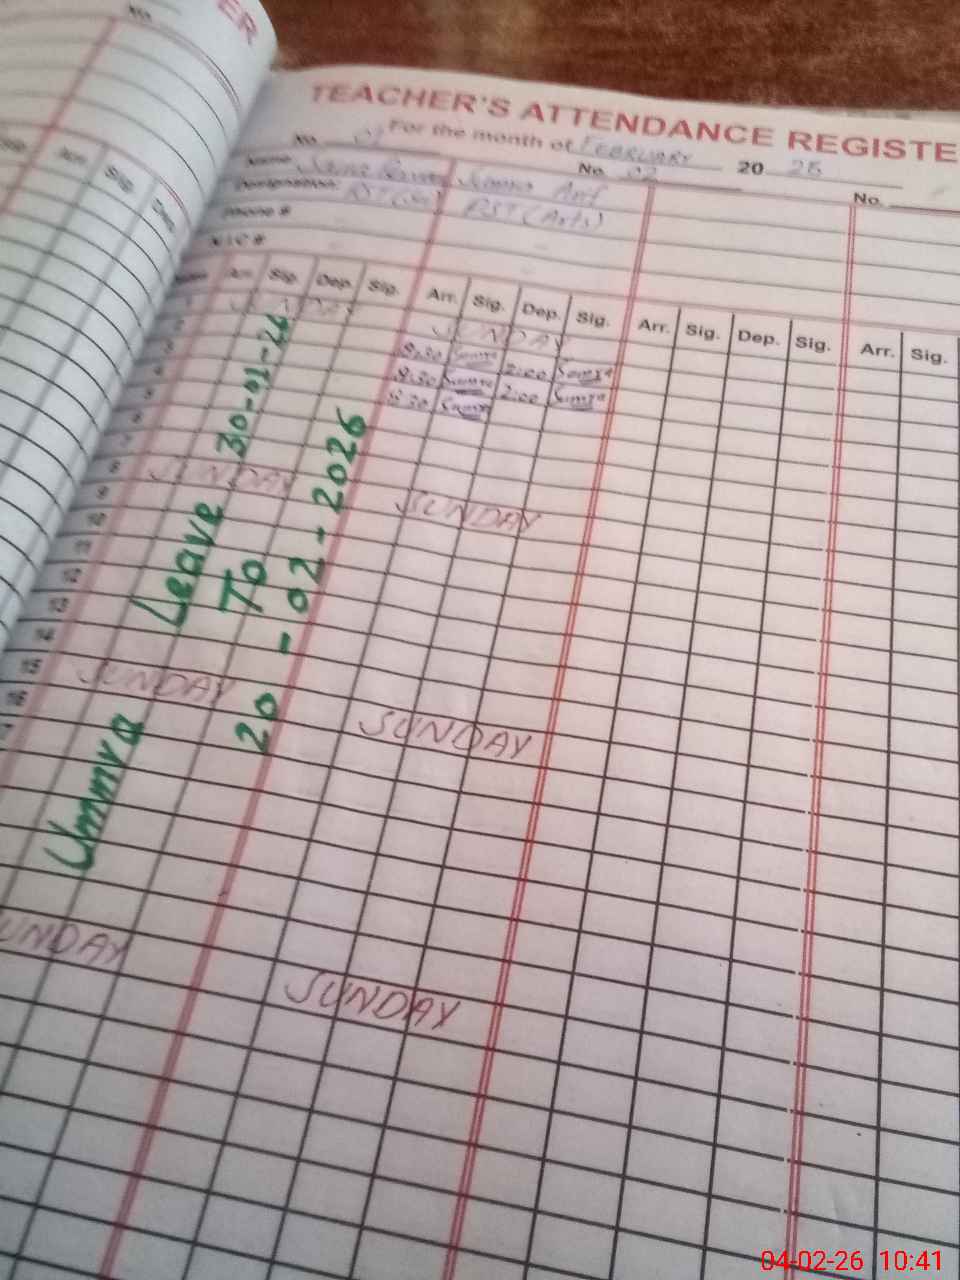 ER
No.
TEACHER'S ATTENDANCE REGISTE
For the month of FEBRUARY 20 26
No. 01 No. 02 No.
Name
Designation:
PST (Arts)
Phone #
N.I.C #
Arr. Sig. Dep. Sig. Arr. Sig. Dep. Sig. Arr. Sig. Dep. Sig. Arr. Sig.
1 SUNDAY SUNDAY
2 8:30 Sumra 2:00 Sumra
3 8:30 Sumra 2:00 Sumra
4 8:30 Sumra
5
6
7
8 SUNDAY SUNDAY
9
10
11
12
13
14
15 SUNDAY SUNDAY
16
17
SUNDAY SUNDAY
Ummra Leave 30-01-26
To
20-02-2026
04-02-26 10:41